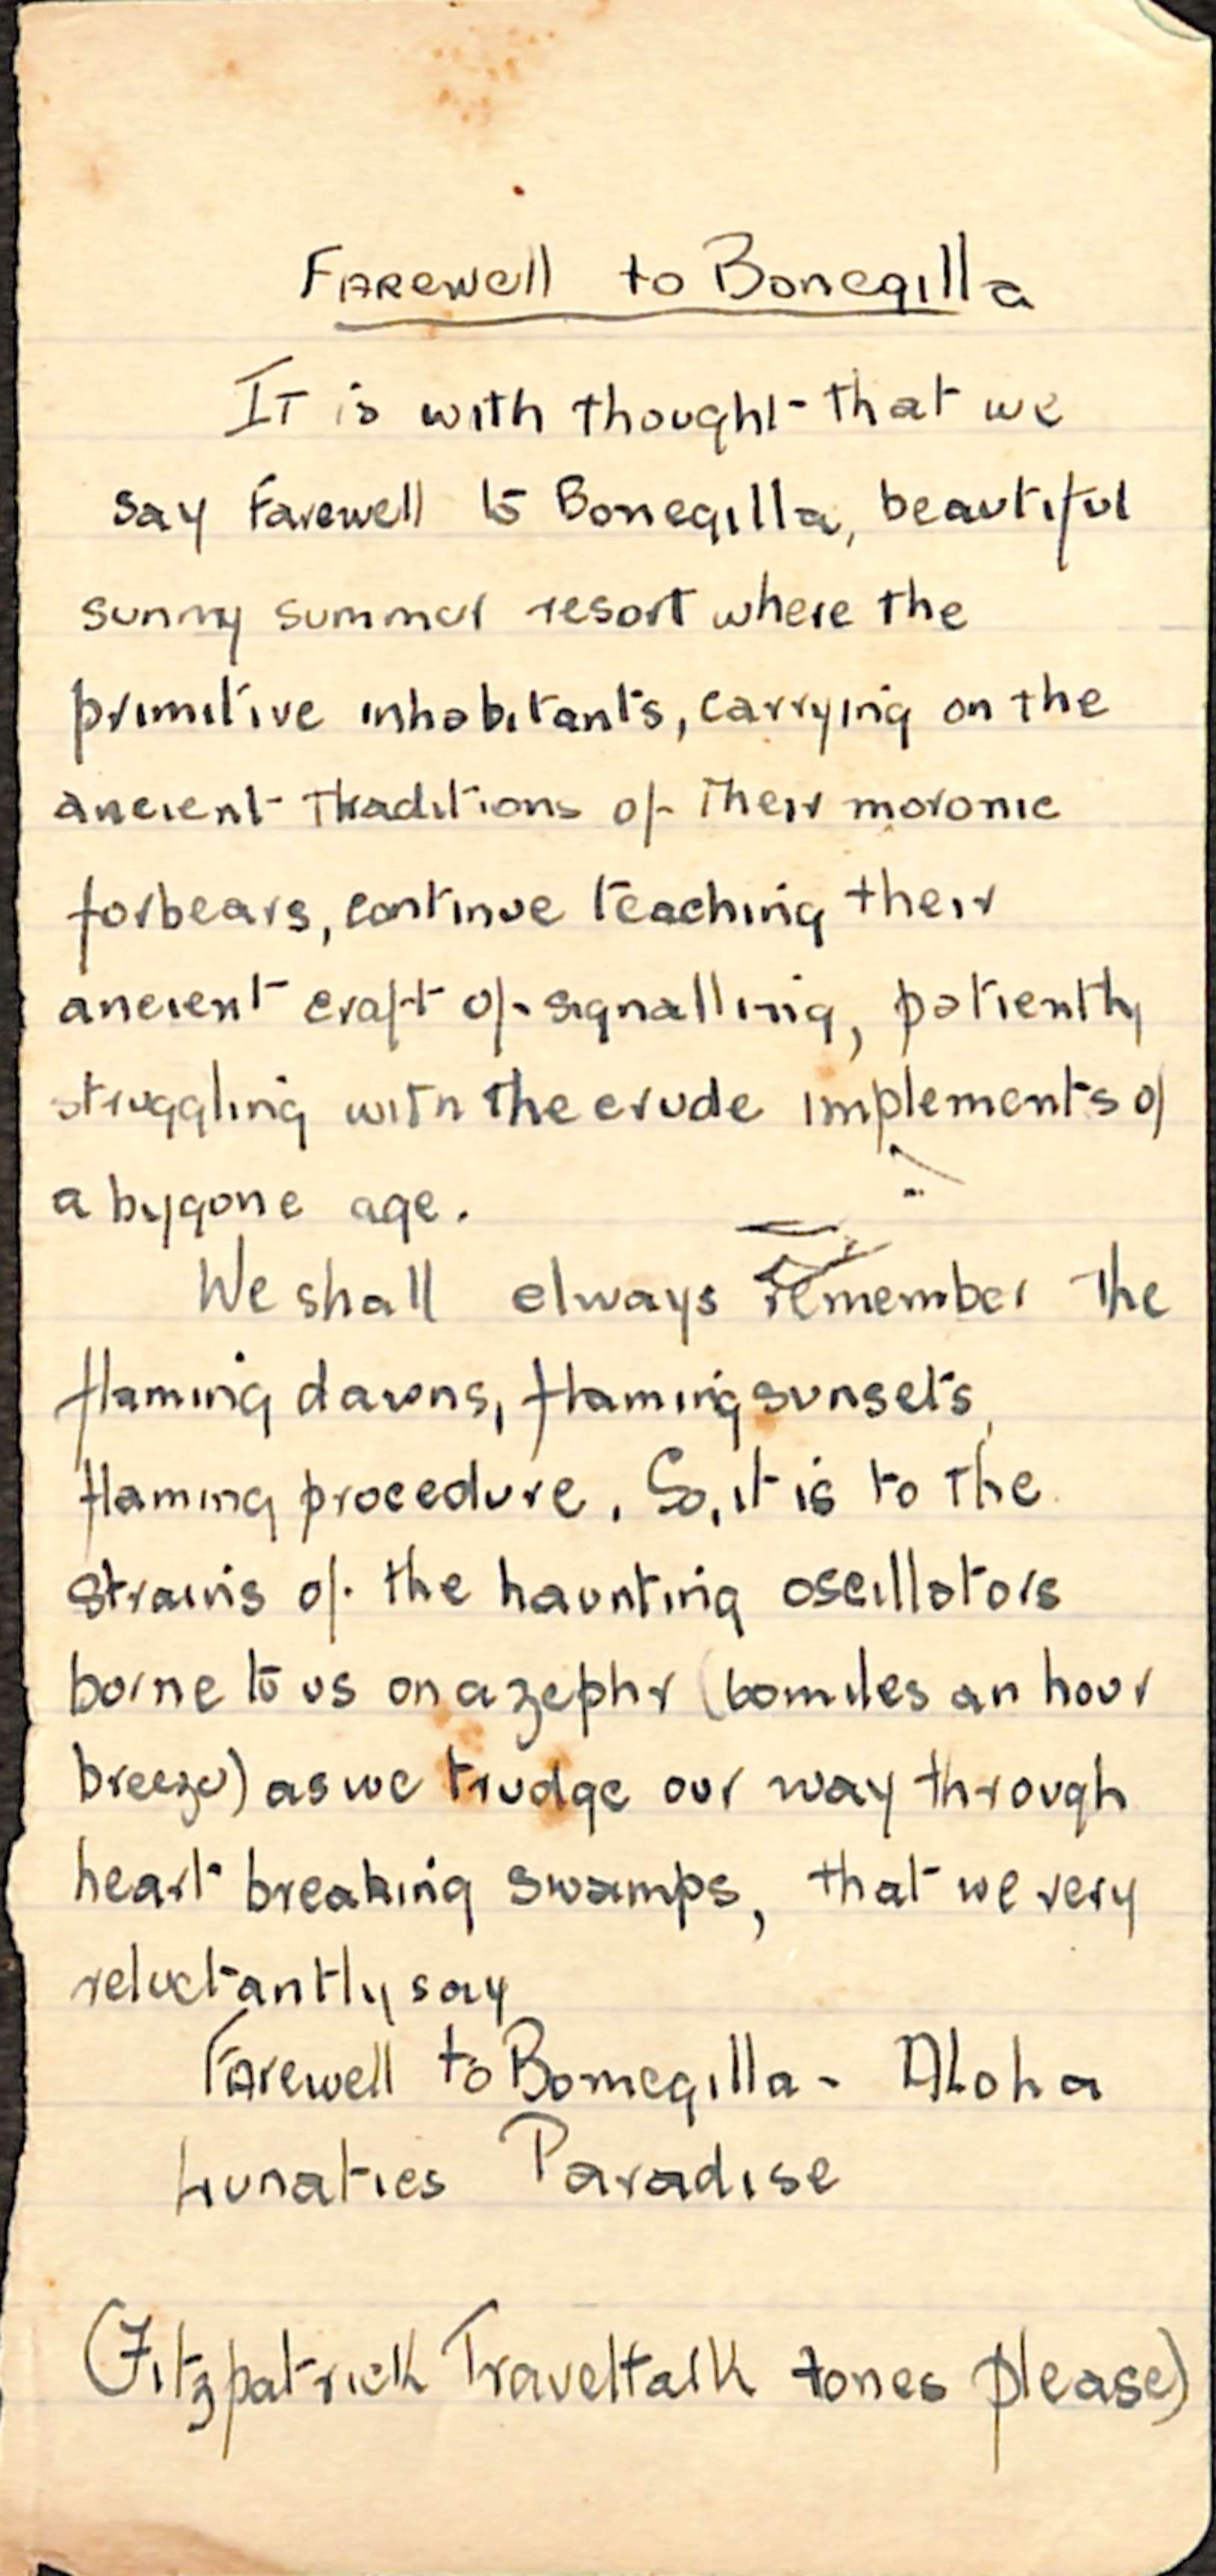 Farewell to Bonegilla
It is with thought that we
say Farewell to Bonegilla, beautiful
sunny summer resort where the
primitive inhabitants, carrying on the
ancient traditions of their moronic
forbears, continue teaching their
ancient craft of signalling, patiently
struggling with the crude implements of
a bygone age.
We shall always remember the
flaming dawns, flaming sunsets,
flaming procedure. So, it is to the
strains of the haunting oscillators
borne to us on a zephr (60 miles an hour
breeze) as we trudge our way through
heart breaking swamps, that we very
reluctantly say
Farewell to Bonegilla - Aloha
Lunatics Paradise
(Fitzpatrick Traveltalk tones please)